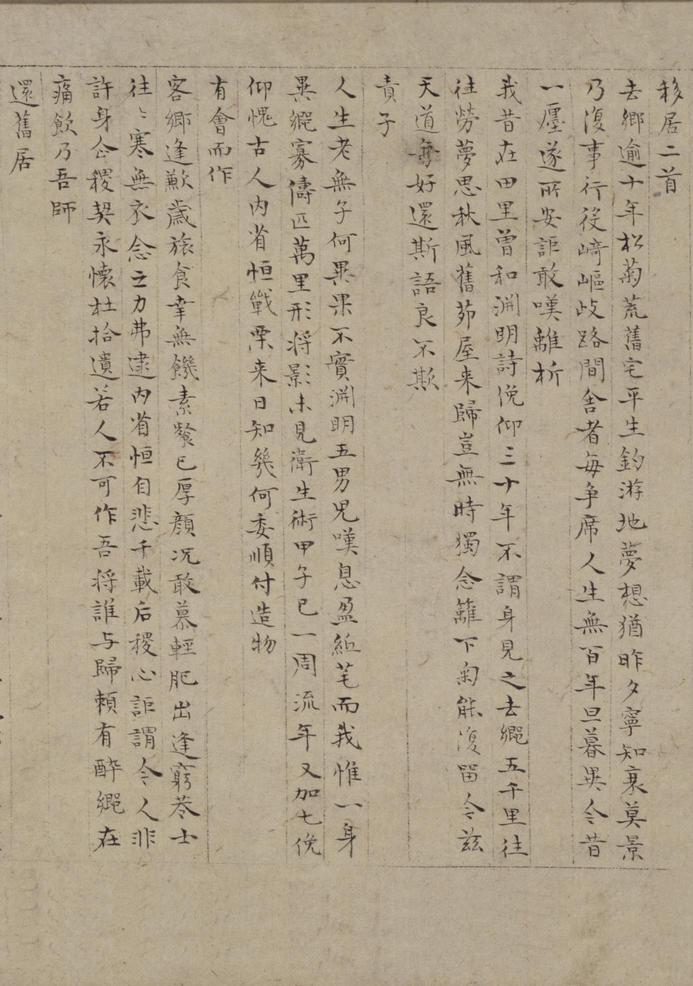 移居二首
去鄉逾十年松菊荒舊宅平生釣游地夢想猶昨夕寧知衰莫景
乃復事行役崎嶇歧路間舍者每爭席人生無百年旦暮異今昔
一廛遂所安詎敢嘆離析
我昔在四里曾和淵明詩俛仰三十年不謂身見之去鄉五千里往
往勞夢思秋風舊茆屋来歸豈無時獨念籬下菊能復留今茲
天道每好還斯語良不欺
責子
人生老無子何異果不實淵明五男兒嘆息盈帋筆而我惟一身
異鄉寡儔匹萬里形将影未見衛生術甲子已一周流年又加七俛
仰愧古人内省恒戰栗来日知幾何委順付造物
有會而作
客鄉逢歉歲旅食幸無饑素餐已厚顏況敢慕輕肥出逢窮巷士
往〻寒無衣念之力弗逮内省恒自悲千載后稷心詎謂今人非
許身企稷契永懷杜拾遺若人不可作吾将誰与歸賴有醉鄉在
痛飲乃吾師
還舊居